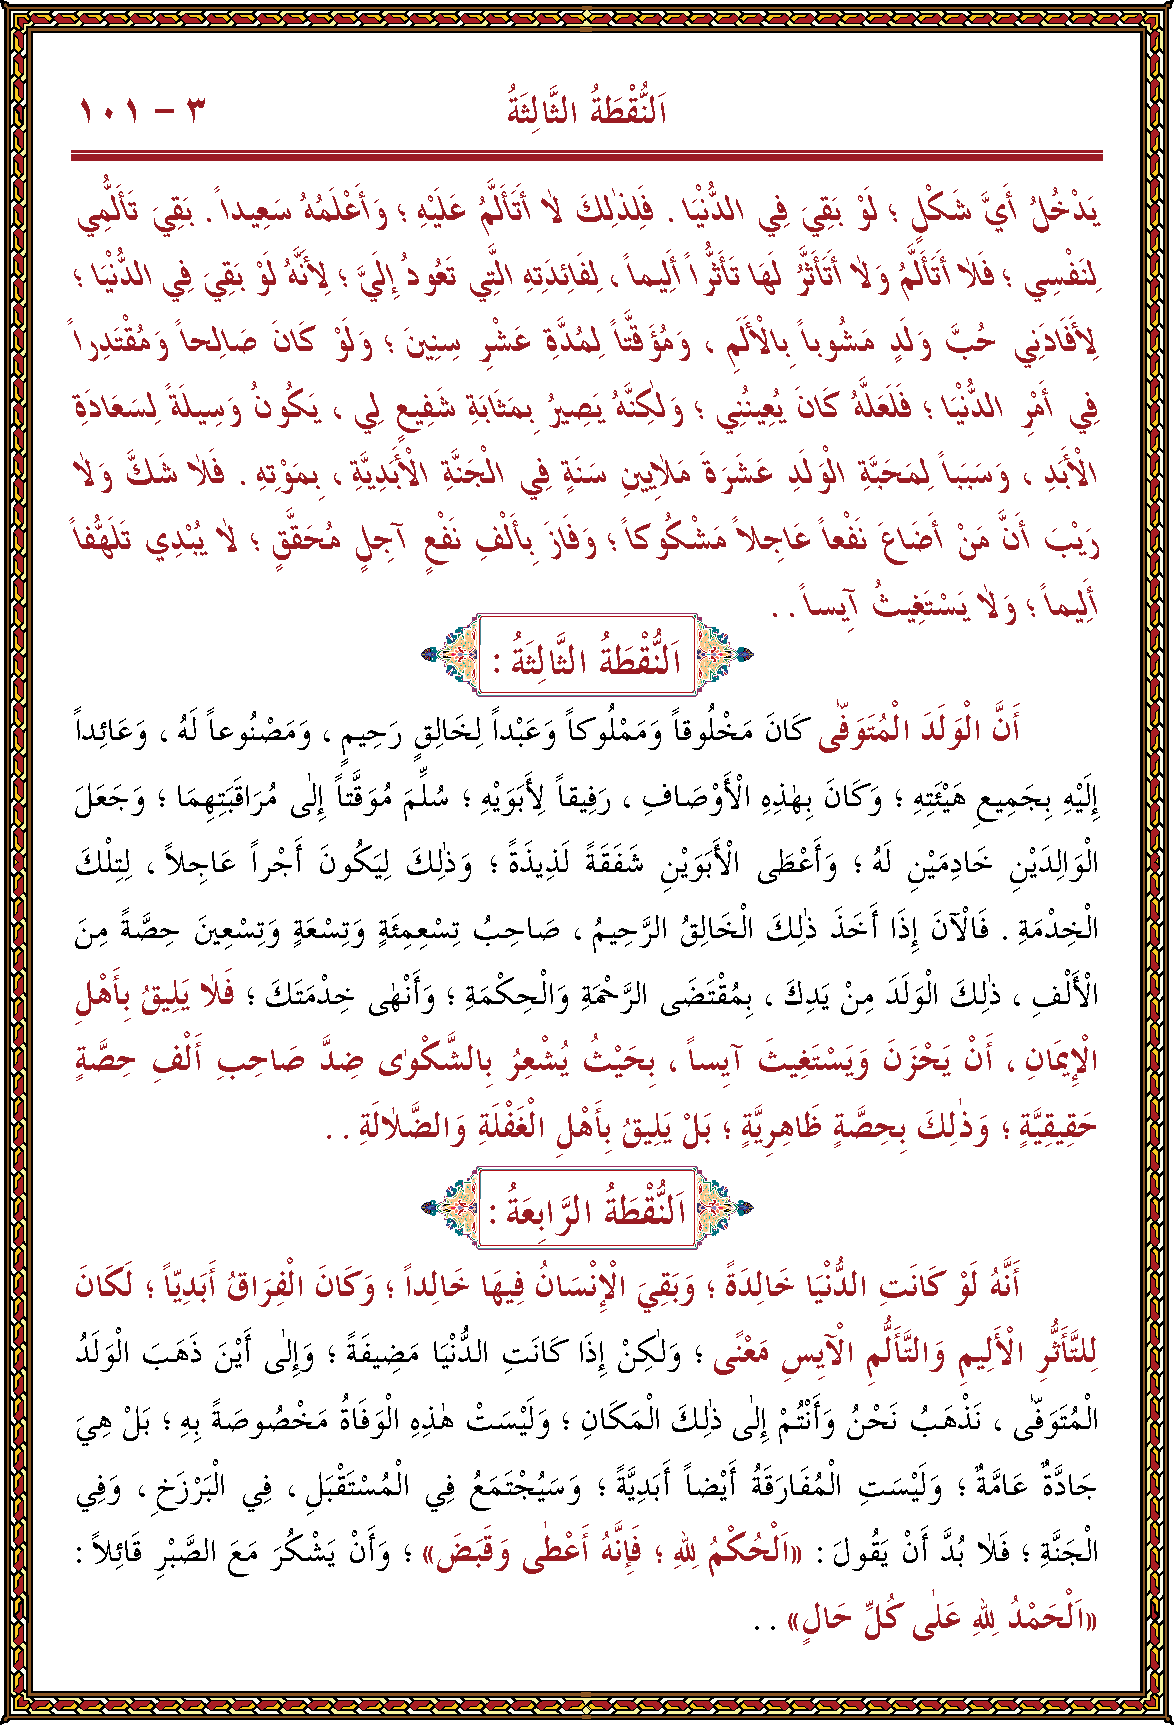 اَلنُّقْطَةُ الثَّالِثَةُ
٣ – ١٠١
يَدْخُلُ أَيَّ شَكْلٍ ؛ لَوْ بَقِيَ فِي الدُّنْيَا . فَلِذٰلِكَ لَا أَتَأَلَّمُ عَلَيْهِ ؛ وَأَعْلَمُهُ سَعِيداً . بَقِيَ تَأَلُّمِي
لِنَفْسِي ؛ فَلَا أَتَأَلَّمُ وَلَا أَتَأَثَّرُ لَهَا تَأَثُّراً أَلِيماً ، لِفَائِدَتِهِ الَّتِي تَعُودُ إِلَيَّ ؛ لِأَنَّهُ لَوْ بَقِيَ فِي الدُّنْيَا ؛
لَأَفَادَنِي حُبَّ وَلَدٍ مَشُوباً بِالْأَلَمِ ، وَمُؤَقَّتاً لِمُدَّةِ عَشْرِ سِنِينَ ؛ وَلَوْ كَانَ صَالِحاً وَمُقْتَدِراً
فِي أَمْرِ الدُّنْيَا ؛ فَلَعَلَّهُ كَانَ يُعِينُنِي ؛ وَلٰكِنَّهُ يَصِيرُ بِمَثَابَةِ شَفِيعٍ لِي ، يَكُونُ وَسِيلَةً لِسَعَادَةِ
الْأَبَدِ ، وَسَبَباً لِمَحَبَّةِ الْوَلَدِ عَشَرَةَ مَلَايِينِ سَنَةٍ فِي الْجَنَّةِ الْأَبَدِيَّةِ ، بِمَوْتِهِ . فَلَا شَكَّ وَلَا
رَيْبَ أَنَّ مَنْ أَضَاعَ نَفْعاً عَاجِلاً مَشْكُوكاً ؛ وَفَازَ بِأَلْفِ نَفْعٍ آجِلٍ مُحَقَّقٍ ؛ لَا يُبْدِي تَلَهُّفاً
أَلِيماً ؛ وَلَا يَسْتَغِيثُ آيِساً . .
اَلنُّقْطَةُ الثَّالِثَةُ :
أَنَّ الْوَلَدَ الْمُتَوَفّٰى كَانَ مَخْلُوقاً وَمَمْلُوكاً وَعَبْداً لِخَالِقٍ رَحِيمٍ ، وَمَصْنُوعاً لَهُ ، وَعَائِداً
إِلَيْهِ بِجَمِيعِ هَيْئَتِهِ ؛ وَكَانَ بِهٰذِهِ الْأَوْصَافِ ، رَفِيقاً لِأَبَوَيْهِ ؛ سُلِّمَ مُوَقَّتاً إِلٰى مُرَاقَبَتِهِمَا ؛ وَجَعَلَ
الْوَالِدَيْنِ خَادِمَيْنِ لَهُ ؛ وَأَعْطَى الْأَبَوَيْنِ شَفَقَةً لَذِيذَةً ؛ وَذٰلِكَ لِيَكُونَ أَجْراً عَاجِلاً ، لِتِلْكَ
الْخِدْمَةِ . فَالْآنَ إِذَا أَخَذَ ذٰلِكَ الْخَالِقُ الرَّحِيمُ ، صَاحِبُ تِسْعِمِئَةٍ وَتِسْعَةٍ وَتِسْعِينَ حِصَّةً مِنَ
الْأَلْفِ ، ذٰلِكَ الْوَلَدَ مِنْ يَدِكَ ، بِمُقْتَضَى الرَّحْمَةِ وَالْحِكْمَةِ ؛ وَأَنْهٰى خِدْمَتَكَ ؛ فَلَا يَلِيقُ بِأَهْلِ
الْإِيمَانِ ، أَنْ يَحْزَنَ وَيَسْتَغِيثَ آيِساً ، بِحَيْثُ يُشْعِرُ بِالشَّكْوٰى ضِدَّ صَاحِبِ أَلْفِ حِصَّةٍ
حَقِيقِيَّةٍ ؛ وَذٰلِكَ بِحِصَّةٍ ظَاهِرِيَّةٍ ؛ بَلْ يَلِيقُ بِأَهْلِ الْغَفْلَةِ وَالضَّلَالَةِ . .
اَلنُّقْطَةُ الرَّابِعَةُ :
أَنَّهُ لَوْ كَانَتِ الدُّنْيَا خَالِدَةً ؛ وَبَقِيَ الْإِنْسَانُ فِيهَا خَالِداً ؛ وَكَانَ الْفِرَاقُ أَبَدِيّاً ؛ لَكَانَ
لِلتَّأَثُّرِ الْأَلِيمِ وَالتَّأَلُّمِ الْآيِسِ مَعْنًى ؛ وَلٰكِنْ إِذَا كَانَتِ الدُّنْيَا مَضِيفَةً ؛ وَإِلٰى أَيْنَ ذَهَبَ الْوَلَدُ
الْمُتَوَفّٰى ، نَذْهَبُ نَحْنُ وَأَنْتُمْ إِلٰى ذٰلِكَ الْمَكَانِ ؛ وَلَيْسَتْ هٰذِهِ الْوَفَاةُ مَخْصُوصَةً بِهِ ؛ بَلْ هِيَ
جَادَّةٌ عَامَّةٌ ؛ وَلَيْسَتِ الْمُفَارَقَةُ أَيْضاً أَبَدِيَّةً ؛ وَسَيُجْتَمَعُ فِي الْمُسْتَقْبَلِ ، فِي الْبَرْزَخِ ، وَفِي
الْجَنَّةِ ؛ فَلَا بُدَّ أَنْ يَقُولَ : «اَلْحُكْمُ لِلّٰهِ ؛ فَإِنَّهُ أَعْطٰى وَقَبَضَ» ؛ وَأَنْ يَشْكُرَ مَعَ الصَّبْرِ قَائِلاً :
«اَلْحَمْدُ لِلّٰهِ عَلٰى كُلِّ حَالٍ» . .